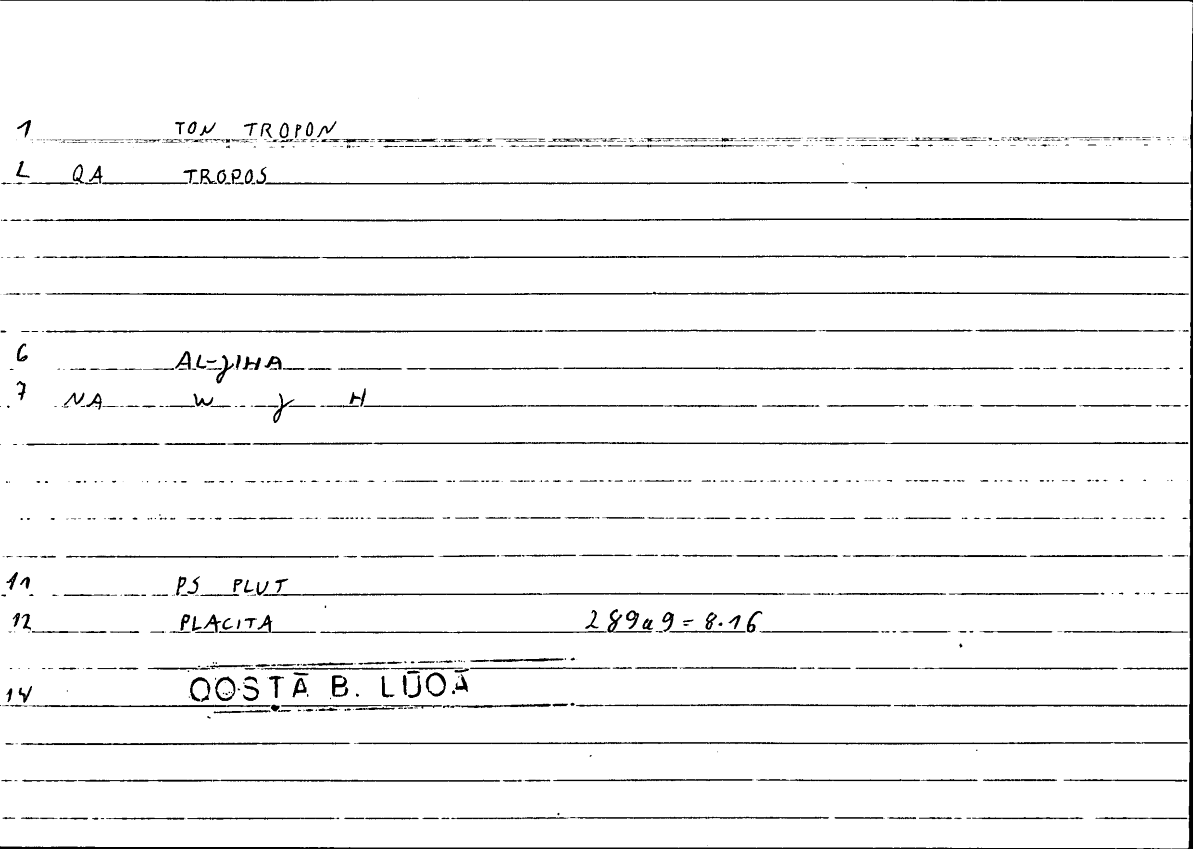 1 TON TROPON
2 QA TROPOS
6 AL-JIHA
7 NA W J H
11 PS PLUT
12 PLACITA 289a9=8.16
14 QOSTĀ B. LŪQĀ